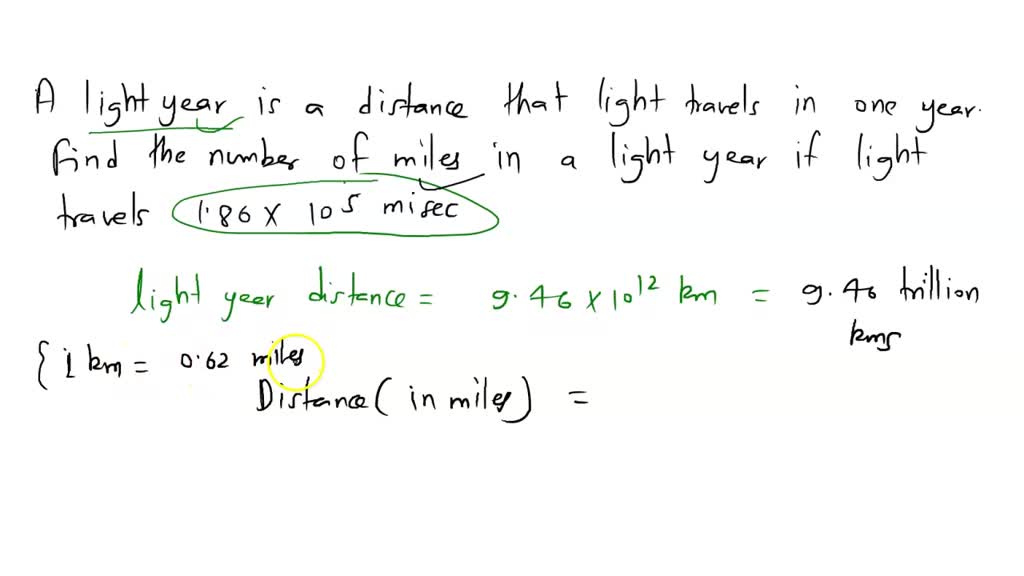 A light year is a distance that light travels in one year.
Find the number of miles in a light year if light
travels 1.86 X 10^5 misec
light year distance = 9.46 X 10^12 km = 9.46 trillion
kms
{ 1 km = 0.62 miles
Distance ( in miles) =